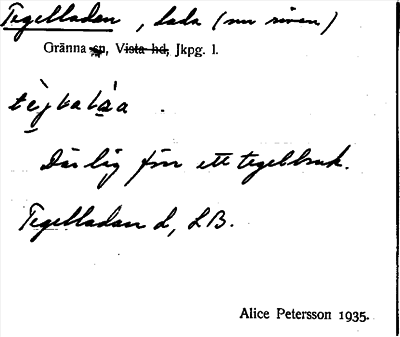 Tegelladan, lada (nu riven)
Gränna sn, Vista hd, Jkpg. l.
Där låg förr ett tegelbruk.
Tegelladan d, LB.
Alice Petersson 1935.